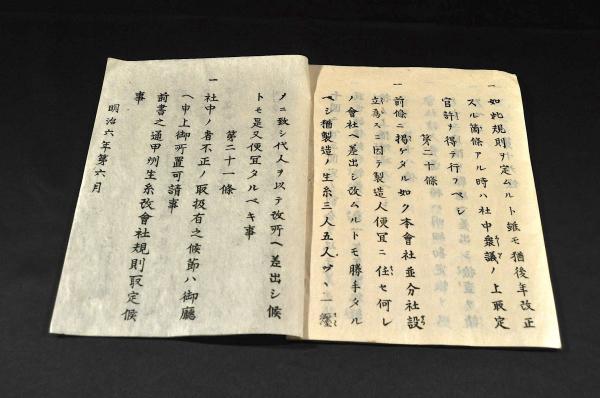 一
如此規則ヲ定ムルト雖モ猶後年改正
スル箇條アル時ハ社中衆議ノ上取定
官許ヲ得テ行フベシ
第二十條
一
前條ニ掲ゲタル如ク本會社並分社設
立爲スニ因テ製造人便宜ニ任セ何レ
ノ會社ヘ差出シ改ムルトモ勝手タル
ベシ猶製造ノ生糸三人五人ヅヽ一纏
メニ致シ代人ヲ以テ改所ヘ差出シ候
トモ是又便宜タルベキ事
第二十一條
一
社中ノ者不正ノ取扱有之候節ハ御廳
ヘ申上御所置可請事
前書之通甲州生糸改會社規則取定候
事
明治六年第六月